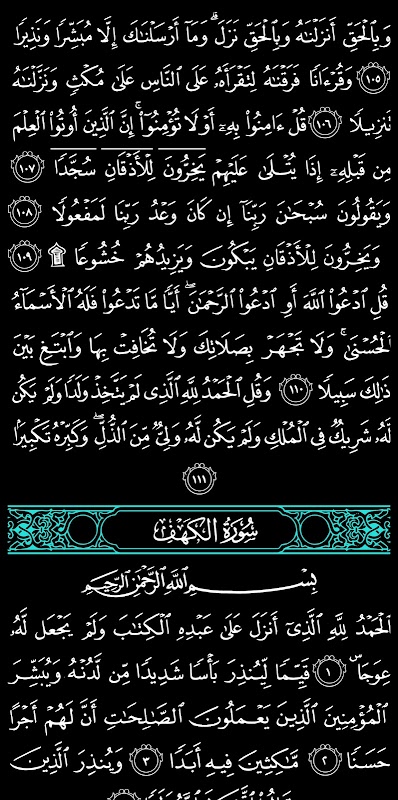 وَبِٱلْحَقِّ أَنزَلْنَٰهُ وَبِٱلْحَقِّ نَزَلَ ۗ وَمَآ أَرْسَلْنَٰكَ إِلَّا مُبَشِّرًا وَنَذِيرًا
١٠٥ وَقُرْءَانًا فَرَقْنَٰهُ لِتَقْرَأَهُۥ عَلَى ٱلنَّاسِ عَلَىٰ مُكْثٍ وَنَزَّلْنَٰهُ
تَنزِيلًا ١٠٦ قُلْ ءَامِنُوا۟ بِهِۦٓ أَوْ لَا تُؤْمِنُوٓا۟ ۚ إِنَّ ٱلَّذِينَ أُوتُوا۟ ٱلْعِلْمَ
مِن قَبْلِهِۦٓ إِذَا يُتْلَىٰ عَلَيْهِمْ يَخِرُّونَ لِلْأَذْقَانِ سُجَّدًا ١٠٧
وَيَقُولُونَ سُبْحَٰنَ رَبِّنَآ إِن كَانَ وَعْدُ رَبِّنَا لَمَفْعُولًا ١٠٨
وَيَخِرُّونَ لِلْأَذْقَانِ يَبْكُونَ وَيَزِيدُهُمْ خُشُوعًا ۩ ١٠٩
قُلِ ٱدْعُوا۟ ٱللَّهَ أَوِ ٱدْعُوا۟ ٱلرَّحْمَٰنَ ۖ أَيًّا مَّا تَدْعُوا۟ فَلَهُ ٱلْأَسْمَآءُ
ٱلْحُسْنَىٰ ۚ وَلَا تَجْهَرْ بِصَلَاتِكَ وَلَا تُخَافِتْ بِهَا وَٱبْتَغِ بَيْنَ
ذَٰلِكَ سَبِيلًا ١١٠ وَقُلِ ٱلْحَمْدُ لِلَّهِ ٱلَّذِى لَمْ يَتَّخِذْ وَلَدًا وَلَمْ يَكُن
لَّهُۥ شَرِيكٌ فِى ٱلْمُلْكِ وَلَمْ يَكُن لَّهُۥ وَلِىٌّ مِّنَ ٱلذُّلِّ ۖ وَكَبِّرْهُ تَكْبِيرًۢا
١١١
سُورَةُ الكَهْفِ
بِسْمِ ٱللَّهِ ٱلرَّحْمَٰنِ ٱلرَّحِيمِ
ٱلْحَمْدُ لِلَّهِ ٱلَّذِىٓ أَنزَلَ عَلَىٰ عَبْدِهِ ٱلْكِتَٰبَ وَلَمْ يَجْعَل لَّهُۥ
عِوَجَا ۜ ١ قَيِّمًا لِّيُنذِرَ بَأْسًا شَدِيدًا مِّن لَّدُنْهُ وَيُبَشِّرَ
ٱلْمُؤْمِنِينَ ٱلَّذِينَ يَعْمَلُونَ ٱلصَّٰلِحَٰتِ أَنَّ لَهُمْ أَجْرًا
حَسَنًا ٢ مَّٰكِثِينَ فِيهِ أَبَدًا ٣ وَيُنذِرَ ٱلَّذِينَ